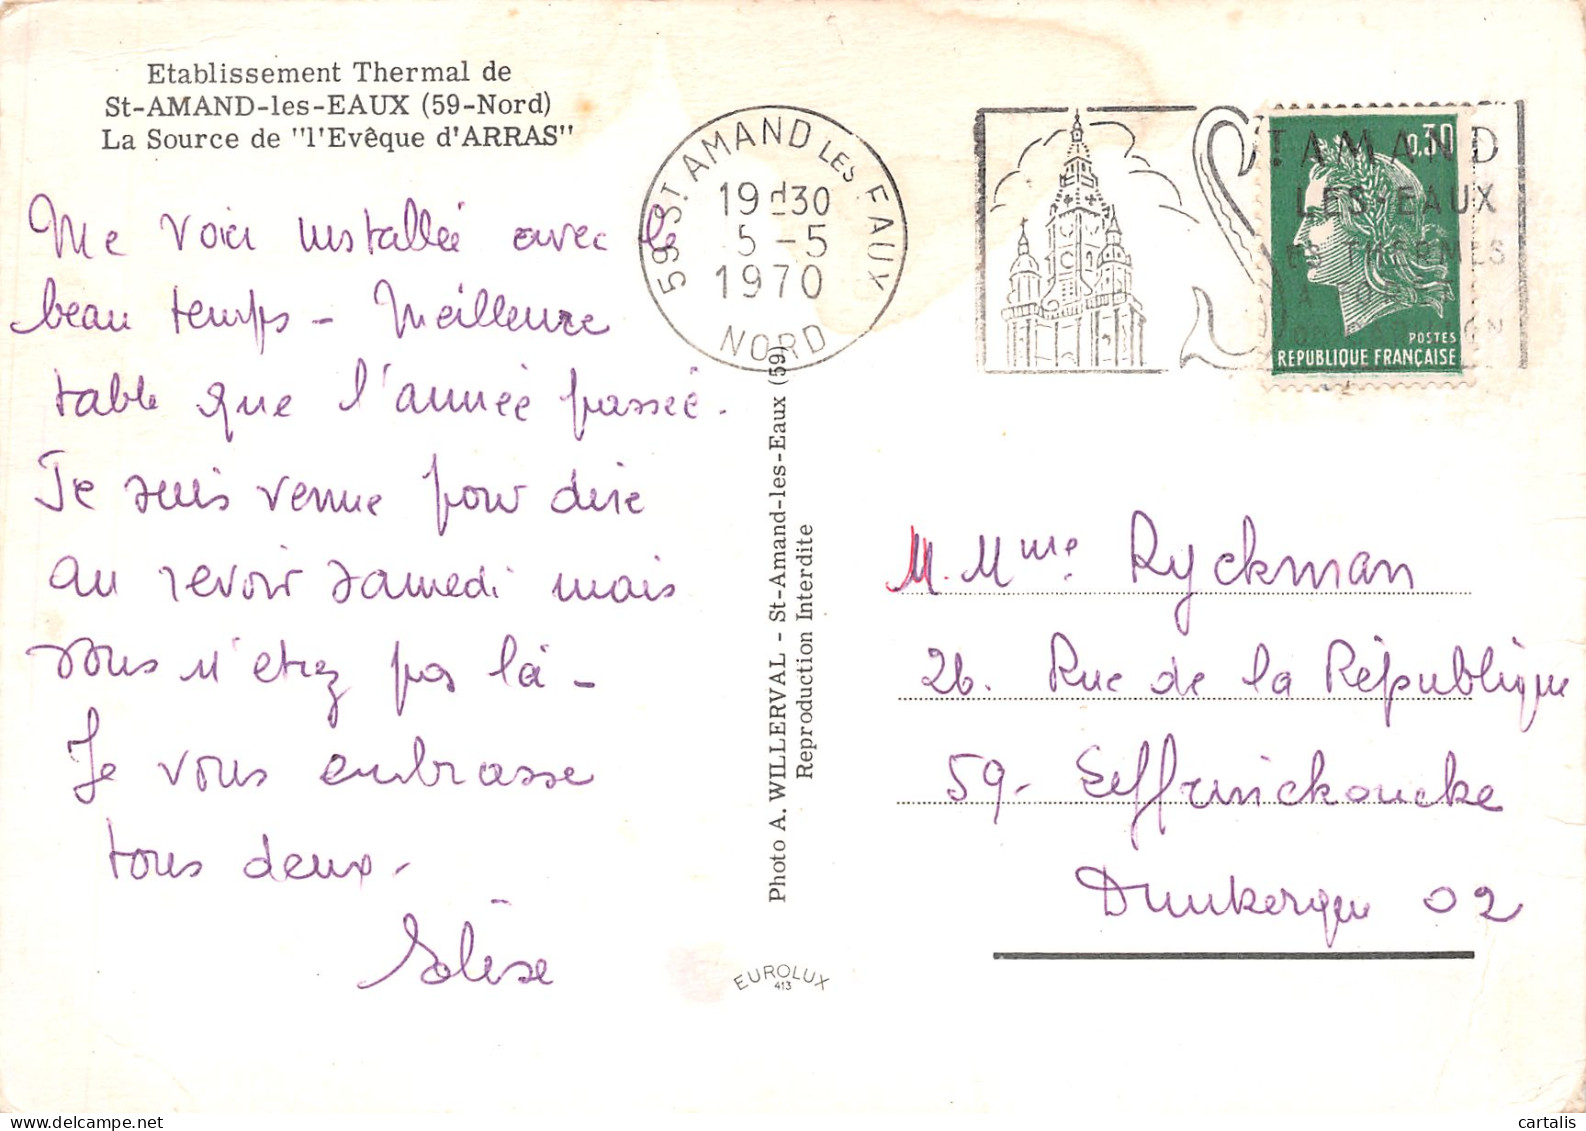 Etablissement Thermal de
St-AMAND-les-EAUX (59-Nord)
La Source de "l'Evêque d'ARRAS"
Me voici installée avec le
beau temps - Meilleure
table que l'année passée.
Je suis venue pour dire
au revoir samedi mais
vous n'étiez pas là -
Je vous embrasse
tous deux.
59 ST AMAND LES EAUX
19 30
5 -5
1970
NORD
ST AMAND
LES-EAUX
SES THERMES
0,30
POSTES
REPUBLIQUE FRANÇAISE
Photo A. WILLERVAL - St-Amand-les-Eaux (59)
Reproduction Interdite
EUROLUX
413
M. Mme Ryckman
26. Rue de la République
59- Leffrinckoucke
Dunkerque 02
cartalis
www.delcampe.net